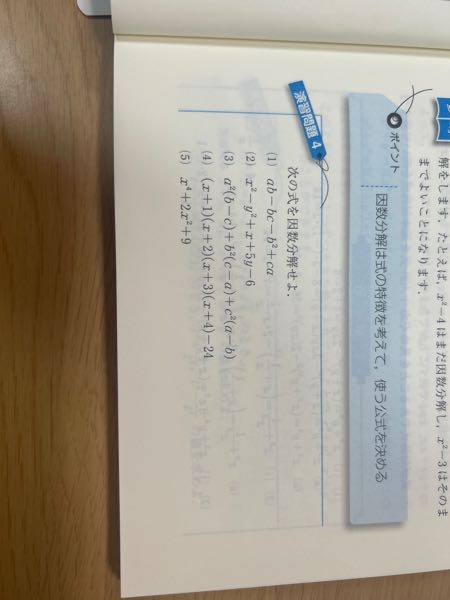 解をします．たとえば，x²−4はまだ因数分解し，x²−3はそのま
までよいことになります．
ポイント
因数分解は式の特徴を考えて，使う公式を決める
演習問題 4
次の式を因数分解せよ．
(1) ab−bc−b²+ca
(2) x²−y²+x+5y−6
(3) a²(b−c)+b²(c−a)+c²(a−b)
(4) (x+1)(x+2)(x+3)(x+4)−24
(5) x⁴+2x²+9